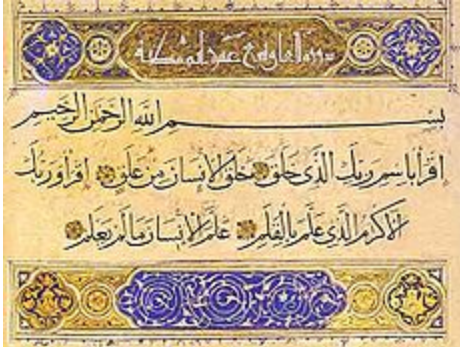 سورة العلق مكية
بِسْمِ اللَّهِ الرَّحْمَنِ الرَّحِيمِ
اقْرَأْ بِاسْمِ رَبِّكَ الَّذِي خَلَقَ خَلَقَ الْإِنْسَانَ مِنْ عَلَقٍ اقْرَأْ وَرَبُّكَ
الْأَكْرَمُ الَّذِي عَلَّمَ بِالْقَلَمِ عَلَّمَ الْإِنْسَانَ مَا لَمْ يَعْلَمْ